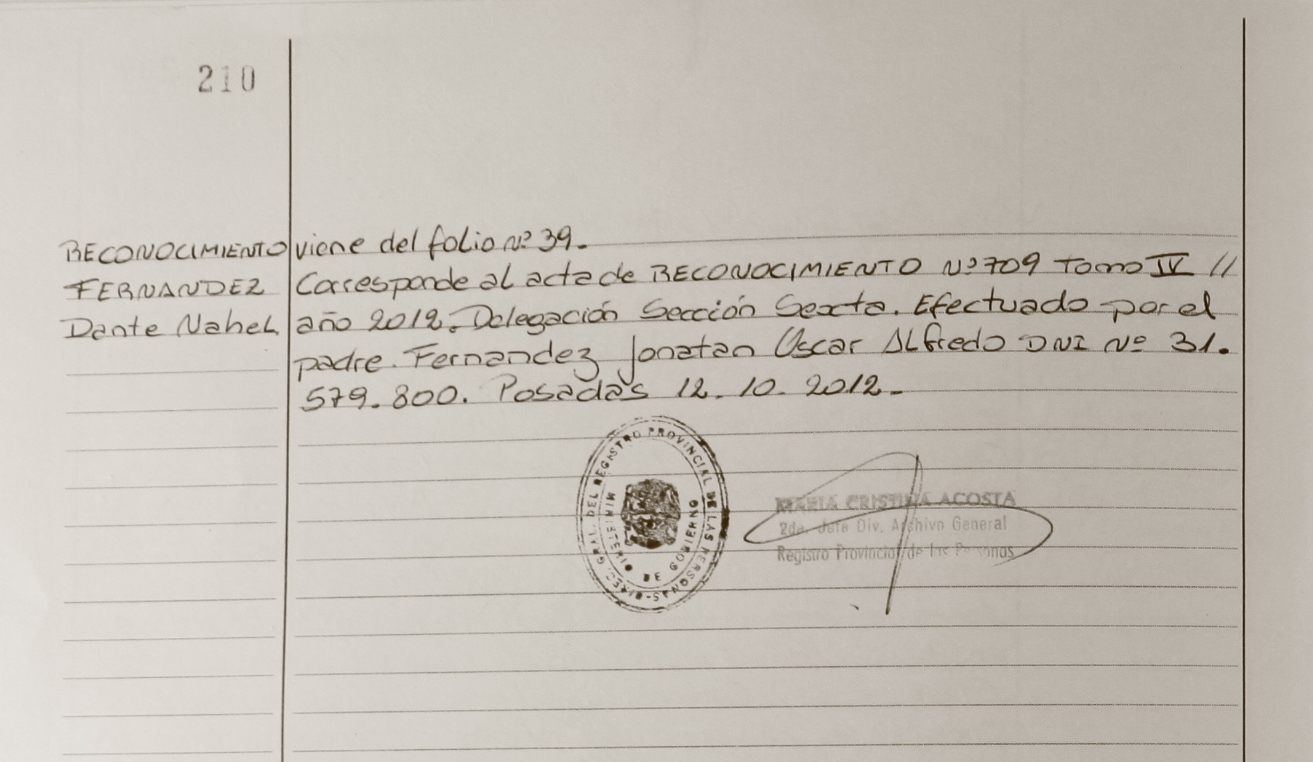 210
RECONOCIMIENTO viene del folio Nº 39.-
FERNANDEZ Corresponde al acta de RECONOCIMIENTO Nº 709 Tomo IV //
Dante Nahel. año 2012. Delegación Sección Sexta. Efectuado por el
padre. Fernandez Jonatan Oscar Alfredo DNI Nº 31.
579.800. Posadas 12.10.2012.-
DIREC. GRAL. DEL REGISTRO PROVINCIAL DE LAS PERSONAS
MINISTERIO DE GOBIERNO
MARIA CRISTINA ACOSTA
2da. Jefe Div. Archivo General
Registro Provincial de las Personas